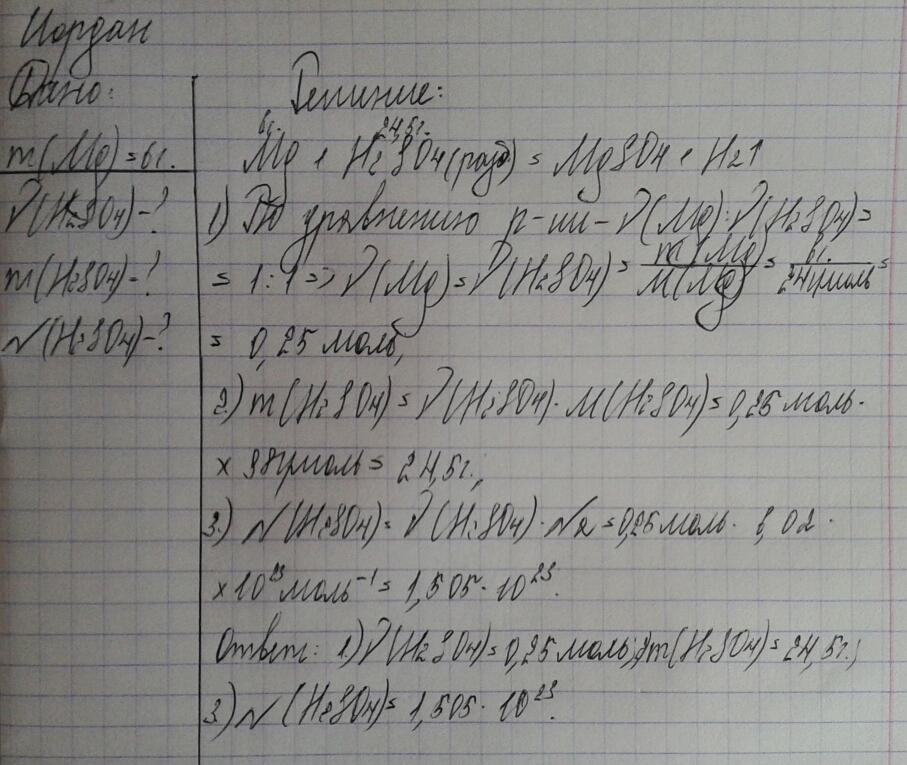 Иордан
Дано:
m(Mg)=6г.
ν(H₂SO₄)-?
m(H₂SO₄)-?
N(H₂SO₄)-?
Решение:
6г. 24,5г.
Mg + H₂SO₄(разб) = MgSO₄ + H₂↑
1) По уравнению р-ии - ν(Mg):ν(H₂SO₄)=
= 1:1 => ν(Mg)=ν(H₂SO₄)= m(Mg)/M(Mg) = 6г./24г/моль =
= 0,25 моль,
2) m(H₂SO₄)=ν(H₂SO₄)·M(H₂SO₄)=0,25 моль·
× 98г/моль= 24,5г.,
3.) N(H₂SO₄)=ν(H₂SO₄)·Na=0,25 моль· 6,02·
×10²³моль⁻¹= 1,505·10²³.
Ответ: 1.)ν(H₂SO₄)=0,25 моль; 2)m(H₂SO₄)= 24,5г.;
3.) N(H₂SO₄)= 1,505·10²³.